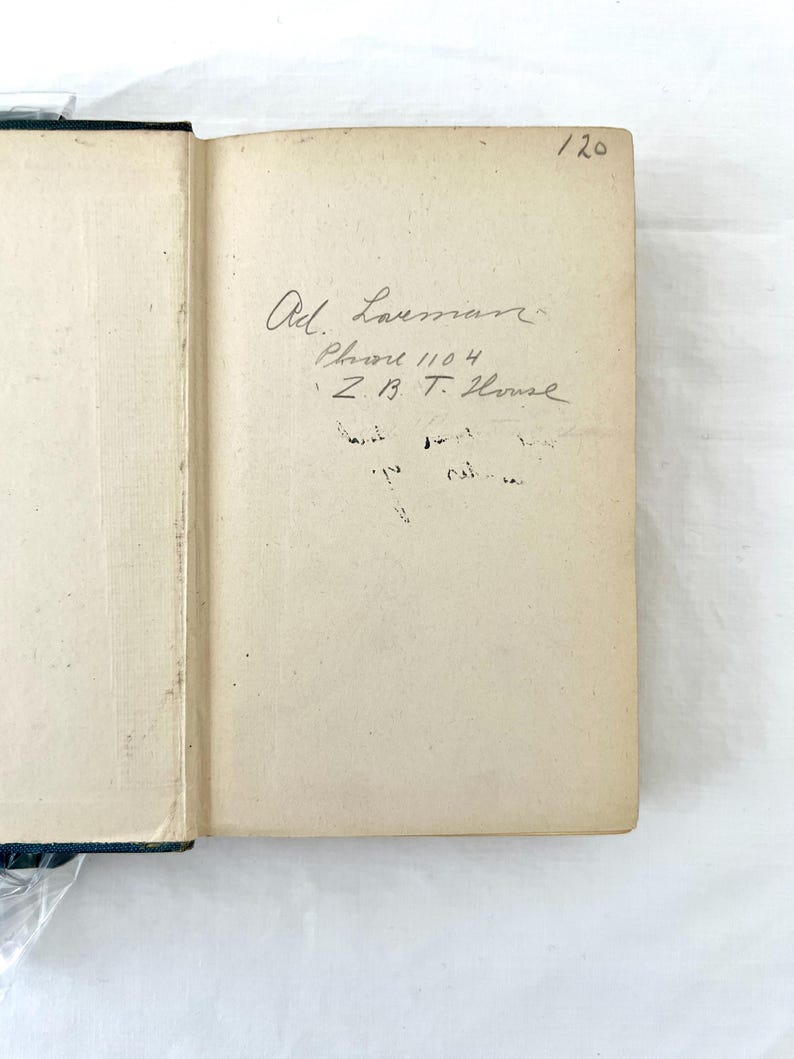 120
Ad. Loveman
Phone 1104
Z. B. T. House